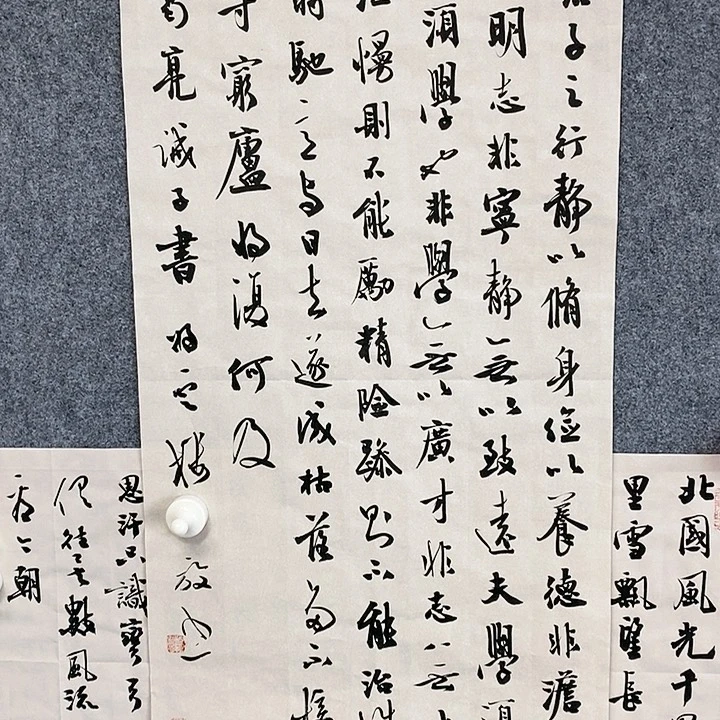 北國風光千
里雪飄望長
子之行靜以脩身儉以養德非澹
明志非寧靜無以致遠夫學須
須學也非學無以廣才非志無
慢則不能勵精險躁則不能治性
時馳意與日去遂成枯多不接
守窮廬將復何及
葛亮誡子書
思汗只識彎弓
俱往矣數風流
看今朝